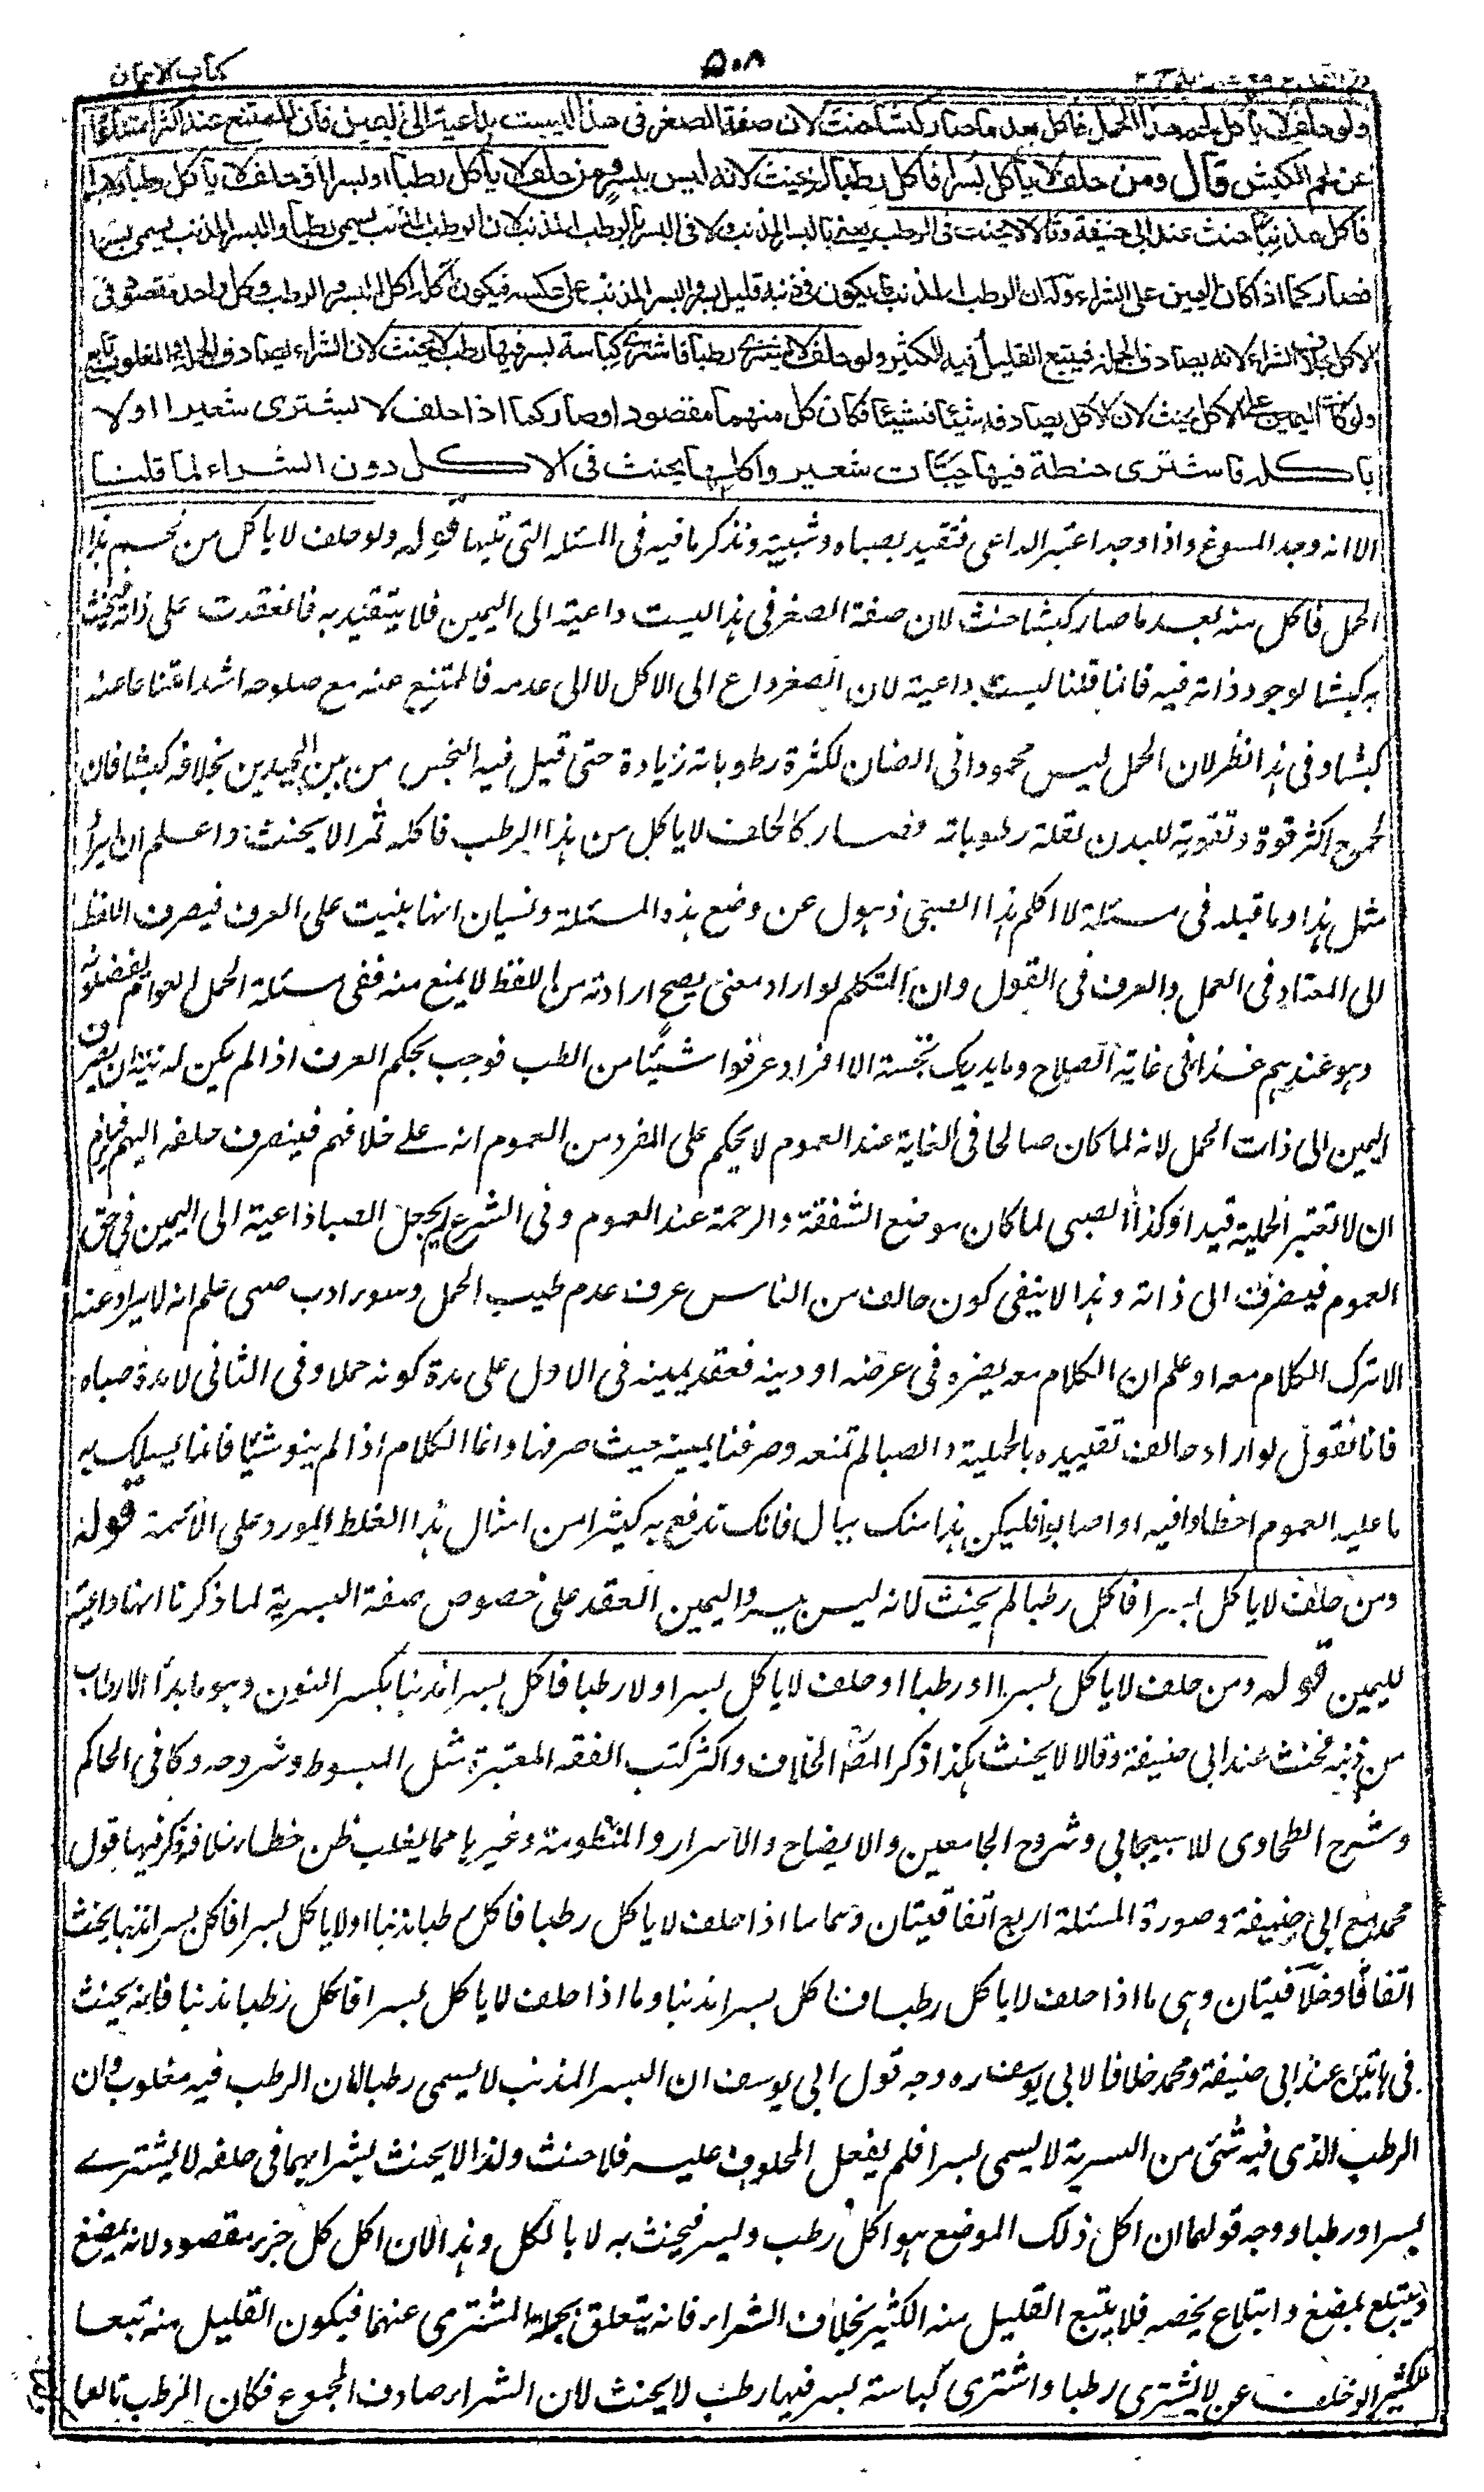 كتاب الايمان
٥٠٨
ولو حلف لا يأكل لحم هذا الحمل فأكل بعد ما صار كبشا حنث لان صفة الصغر فى هذا ليست بداعية الى اليمين فان الممتنع عنه اكثر امتناعا
عن لحم الكبش قال ومن حلف لا يأكل بسرا فأكل رطبا لم يحنث لانه ليس ببسر ومن حلف لا يأكل رطبا او بسرا او حلف لا يأكل رطبا ولا بسرا
فأكل مذنبا حنث عند ابى حنيفة وقالا لا يحنث فى الرطب يعنى بالبسر المذنب ولا فى البسر بالرطب المذنب لان الرطب المذنب يسمى رطبا والبسر المذنب يسمى بسرا
فصار كما اذا كان اليمين على الشراء وله ان الرطب المذنب ما يكون فى ذنبه قليل بسر والبسر المذنب على عكسه فيكون آكله آكل البسر والرطب وكل واحد مقصود فى
الاكل بخلاف الشراء لانه يصادف الجملة فيتبع القليل فيه الكثير ولو حلف لا يشترى رطبا فاشترى كباسة بسر فيها رطب لا يحنث لان الشراء يصادف الجملة والمغلوب تابع
ولو كانت اليمين على الاكل يحنث لان الاكل يصادفه شيئا فشيئا فكان كل منهما مقصودا وصار كما اذا حلف لا يشترى شعيرا او لا
يأكله فاشترى حنطة فيها حبات شعير واكلها يحنث فى الاكل دون الشراء لما قلنا
الا انه وجد المسوغ واذا وجد اعتبر الداعى فتقيد بصباه وشبيبته ونذكر ما فيه فى المسئلة التى تليها قوله ولو حلف لا ياكل من لحم هذا
الحمل فاكل منه بعد ما صار كبشا حنث لان صفة الصغر فى هذا ليست داعية الى اليمين فلا يتقيد به فانعقدت على ذاته فيحنث
به كبشا لوجود ذاته فيه فانما قلنا ليست بداعية لان الصغر داع الى الاكل لا الى عدمه فالممتنع عنه مع صلوحه اشد امتناعا عنه
كبشا وفى هذا نظر لان الحمل ليس محمودا فى الضان لكثرة رطوباته زيادة حتى قيل فيه النجس من بين الجيدين بخلافه كبشا فان
لحمه ح اكثر قوة وتقوية للبدن لقلة رطوباته فصار كالحلف لا ياكل من هذا الرطب فاكله تمرا لا يحنث واعلم ان ايراد
مثل هذا وما قبله فى مسئلة لا اكلم هذا الصبى ذهول عن وضع هذه المسئلة ونسيان انها بنيت على العرف فيصرف اللفظ
الى المعتاد فى العمل والعرف فى القول وان المتكلم لو اراد معنى يصح ارادته من اللفظ لا يمنع منه ففى مسئلة الحمل العوام يفضلونه
وهو عندهم غذاء فى غاية الصلاح وما يدريك نجسه الا افراد عرفوا شيئا من الطب فوجب بحكم العرف اذا لم يكن له نية ان يصرف
اليمين الى ذات الحمل لانه لما كان صالحا فى الغاية عند العموم لا يحكم على المفرد من العموم انه على خلافهم فينصرف حلفه اليهم فيلزم
ان لا تعتبر الحملية قيدا وكذا الصبى لما كان موضع الشفقة والرحمة عند العموم وفى الشرع لم يجعل الصبا داعية الى اليمين فى حق
العموم فيصرف الى ذاته وهذا لا ينفى كون حالف من الناس عرف عدم طيب الحمل وسوء ادب صبى علم انه لا يردعه
الا ترك الكلام معه او علم ان الكلام معه يضره فى عرضه او دينه فعقد يمينه فى الاول على مدة كونه حملا وفى الثانى لا مدة صباه
فانا نقول لو اراد حالف تقييده بالحملية والصبا لم نمنعه وصرفنا يمينه حيث صرفها وانما الكلام اذا لم ينو شيئا فانما يسلك به
ما عليه العموم اخطاوا فيه او اصابوا فليكن هذا منك ببال فانك تدفع به كثيرا من امثال هذا الغلط المورد على الائمة قوله
ومن حلف لا ياكل بسرا فاكل رطبا لم يحنث لانه ليس ببسر واليمين انعقد على خصوص صفة البسرية لما ذكرنا انها داعية
لليمين قوله ومن حلف لا ياكل بسرا او رطبا او حلف لا ياكل بسرا ولا رطبا فاكل بسرا مذنبا بكسر النون وهو ما بدأ الارطاب
من ذنبه فحنث عند ابى حنيفة وقالا لا يحنث هكذا ذكر المصـ الخلاف واكثر كتب الفقه المعتبرة مثل المبسوط وشروحه وكافى الحاكم
وشرح الطحاوى للاسبيجابى وشروح الجامعين والايضاح والاسرار والمنظومة وغيرها مما يغلب ظن خطاء خلافه ذكر فيها قول
محمد مع ابى حنيفة وصورة المسئلة اربع اتفاقيتان وهما ما اذا حلف لا ياكل رطبا فاكل رطبا مذنبا او لا ياكل بسرا فاكل بسرا مذنبا يحنث
اتفاقا وخلافيتان وهى ما اذا حلف لا ياكل رطبا فاكل بسرا مذنبا وما اذا حلف لا ياكل بسرا فاكل رطبا مذنبا فانه يحنث
فى هاتين عند ابى حنيفة ومحمد خلافا لابى يوسف ره وجه قول ابى يوسف ان البسر المذنب لا يسمى رطبا لان الرطب فيه مغلوب وان
الرطب الذى فيه شئ من البسرية لا يسمى بسرا فلم يفعل المحلوف عليه فلا حنث ولذا لا يحنث بشرائهما فى حلفه لا يشترى
بسرا ورطبا ووجه قولهما ان اكل ذلك الموضع هو اكل رطب وبسر فيحنث به لا بالكل وهذا لان اكل كل جزء مقصود لانه يمضغ
ويبتلع بمضغ وابتلاع يخصه فلا يتبع القليل منه الكثير بخلاف الشراء فانه يتعلق بجملة المشترى عنهما فيكون القليل منه تبعا
للكثير الو حلف عن لا يشترى رطبا واشترى كباسة بسر فيها رطب لا يحنث لان الشراء صادف المجموع فكان الرطب تابعا